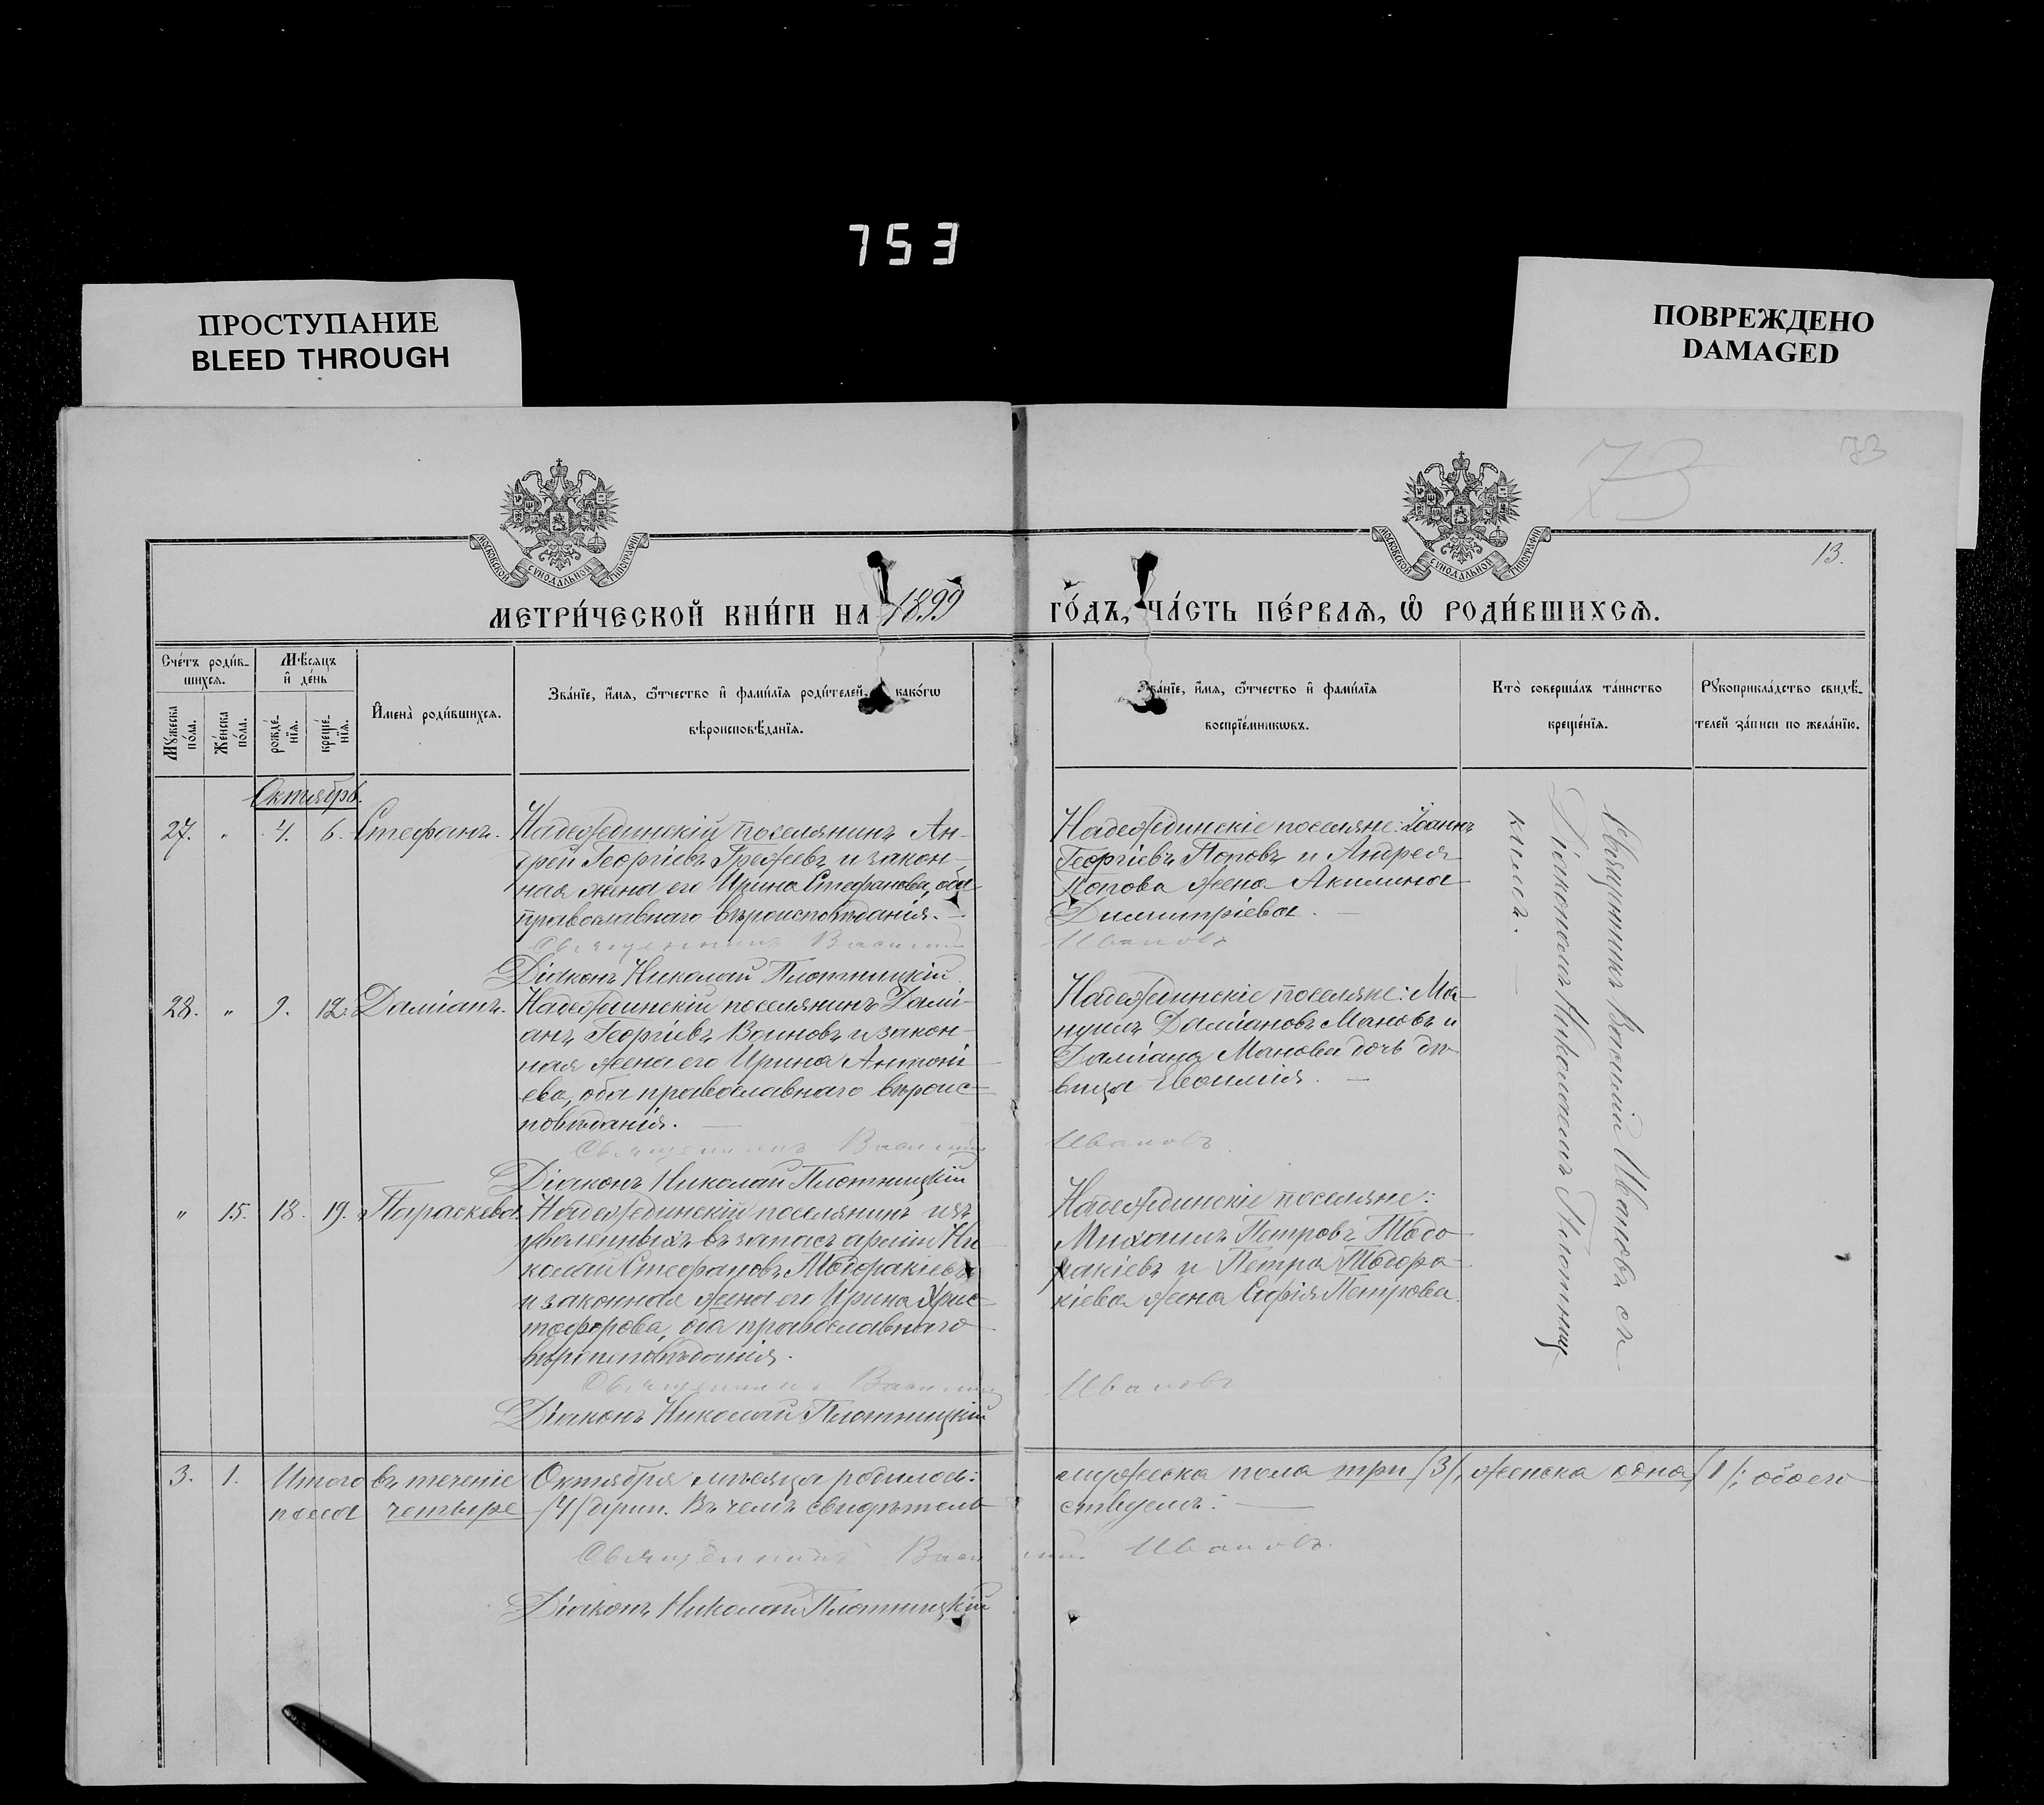 753
ПРОСТУПАНИЕ
BLEED THROUGH
ПОВРЕЖДЕНО
DAMAGED
73
73
13.
МОСКОВСКОЙ СѴНОДАЛЬНОЙ ТИПОГРАФІИ
МОСКОВСКОЙ СѴНОДАЛЬНОЙ ТИПОГРАФІИ
МЕТРИ́ЧЕСКОЙ КНИ́ГИ НА 1899
ГО́ДЪ, ЧА́СТЬ ПЕ́РВАѦ, Ѡ҆ РОДИ́ВШИХСѦ.
Сче́тъ роди́в-
шихсѧ.
Мꙋ́жеска
по́ла.
Же́нска
по́ла.
Мѣ́сѧцъ
и҆ де́нь
рожде́-
нїѧ.
креще́-
нїѧ.
И҆мена̀ роди́вшихсѧ.
Зва́нїе, и҆́мѧ, ѻ҆́тчество и҆ фами́лїѧ роди́телей, како́гѡ
вѣроисповѣ́данїѧ.
Зва́нїе, и҆́мѧ, ѻ҆́тчество и҆ фами́лїѧ
воспрїе́мникѡвъ.
Кто̀ соверша́лъ та́инство
креще́нїѧ.
Рꙋкоприкла́дство свидѣ́-
телей за́писи по жела́нїю.
Октябрь.
27. " 4. 6. Стефанъ.
Надеждинскій поселянинъ Ан-
дрей Георгіевъ Грежевъ и закон-
ная жена его Ирина Стефанова, оба
православнаго вѣроисповѣданія. —
Священникъ Василій
Діаконъ Николай Плотницкій
Надеждинскіе поселяне: Іоаннъ
Георгіевъ Поповъ и Андрея
Попова жена Акилина
Димитріева. —
Ивановъ
28. " 9. 12. Даміанъ.
Надеждинскій поселянинъ Дамі-
анъ Георгіевъ Воиновъ и закон-
ная жена его Ирина Антоні-
ева, оба православнаго вѣроис-
повѣданія. —
Священникъ Василій
Діаконъ Николай Плотницкій
Надеждинскіе поселяне: Ма-
нуилъ Даміановъ Мановъ и
Даміана Манова дочь дѣ-
вица Евѳимія. —
Ивановъ.
" 15. 18. 19. Параскева.
Надеждинскій поселянинъ изъ
уволенныхъ въ запасъ арміи Ни-
колай Стефановъ Тодоракіевъ
и законная жена его Ирина Хрис-
тофорова, оба православнаго
вѣроисповѣданія.
Священникъ Василій
Діаконъ Николай Плотницкій
Надеждинскіе поселяне:
Михаилъ Петровъ Тодо-
ракіевъ и Петра Тодора-
кіева жена Софія Петрова.
Ивановъ
Священникъ Василій Ивановъ съ
Діакономъ Николаемъ Плотниц-
кимъ. —
3. 1. Итого въ теченіе Октября мѣсяца родилось: мужеска пола три /3/, женска одна /1/; обоего
пола четыре /4/ души. Въ чемъ свидѣтель- ствуемъ: —
Священникъ Василій Ивановъ.
Діаконъ Николай Плотницкій